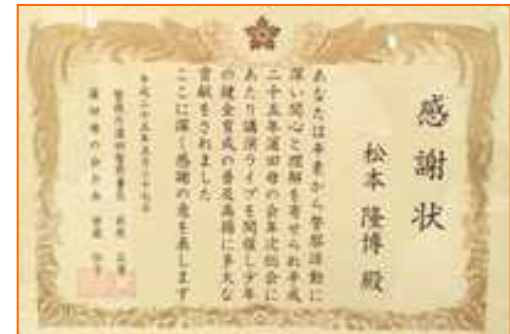 感謝状
松本隆博殿
あなたは平素から警察活動に
深い関心と理解を寄せられ平成
二十五年蒲田母の会年次総会に
あたり講演ライブを開催し少年
の健全育成の普及高揚に多大な
貢献をされました
ここに深く感謝の意を表します
平成二十五年五月二十七日
警視庁蒲田警察署長
蒲田母の会会長